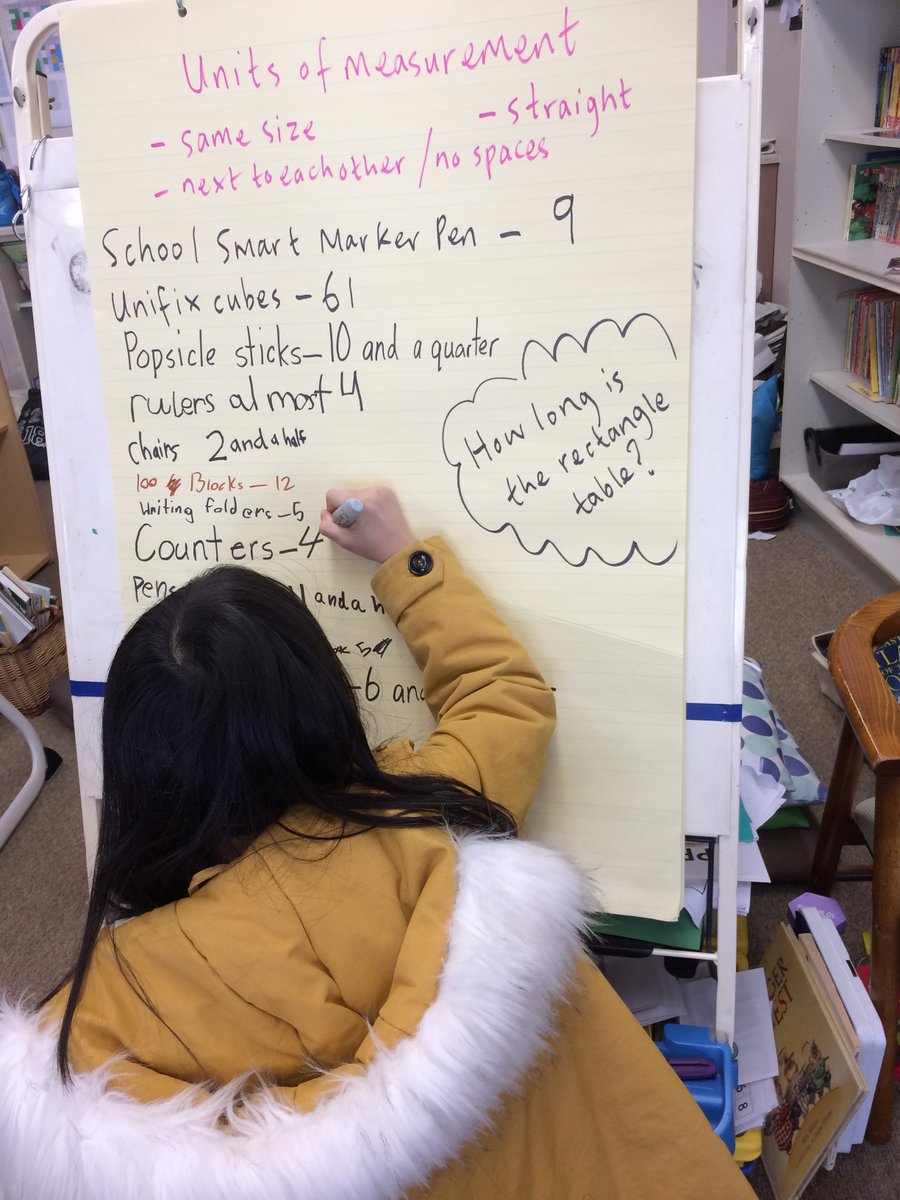 Units of measurement
- same size
- straight
- next to eachother / no spaces
School Smart Marker Pen - 9
Unifix cubes - 61
Popsicle sticks - 10 and a quarter
rulers almost 4
chairs 2 and a half
100 Blocks - 12
Writing folders - 5
Counters - 4
Pens and a
5
- 6 and
How long is
the rectangle
table?